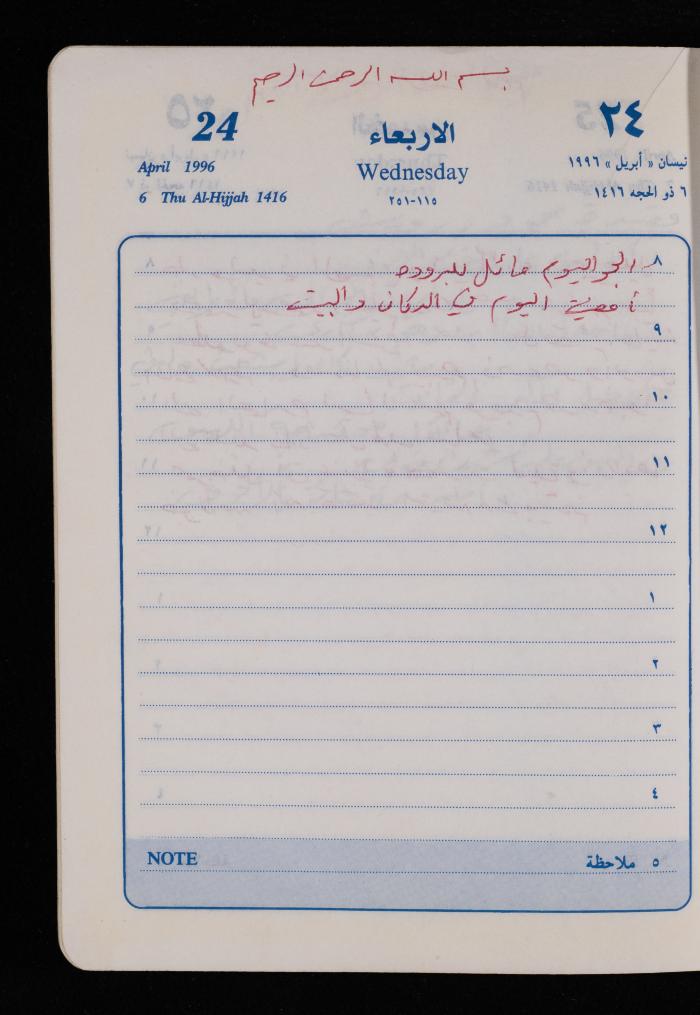 بسم الله الرحمن الرحيم
24 الاربعاء ٢٤
April 1996 Wednesday نيسان « أبريل » ١٩٩٦
6 Thu Al-Hijjah 1416 ١١٥-٢٥١ ٦ ذو الحجه ١٤١٦
٨ الجو اليوم مائل للبروده
أمضيت اليوم في الدكان والبيت
٩
١٠
١١
١٢
١
٢
٣
٤
NOTE ٥ ملاحظة